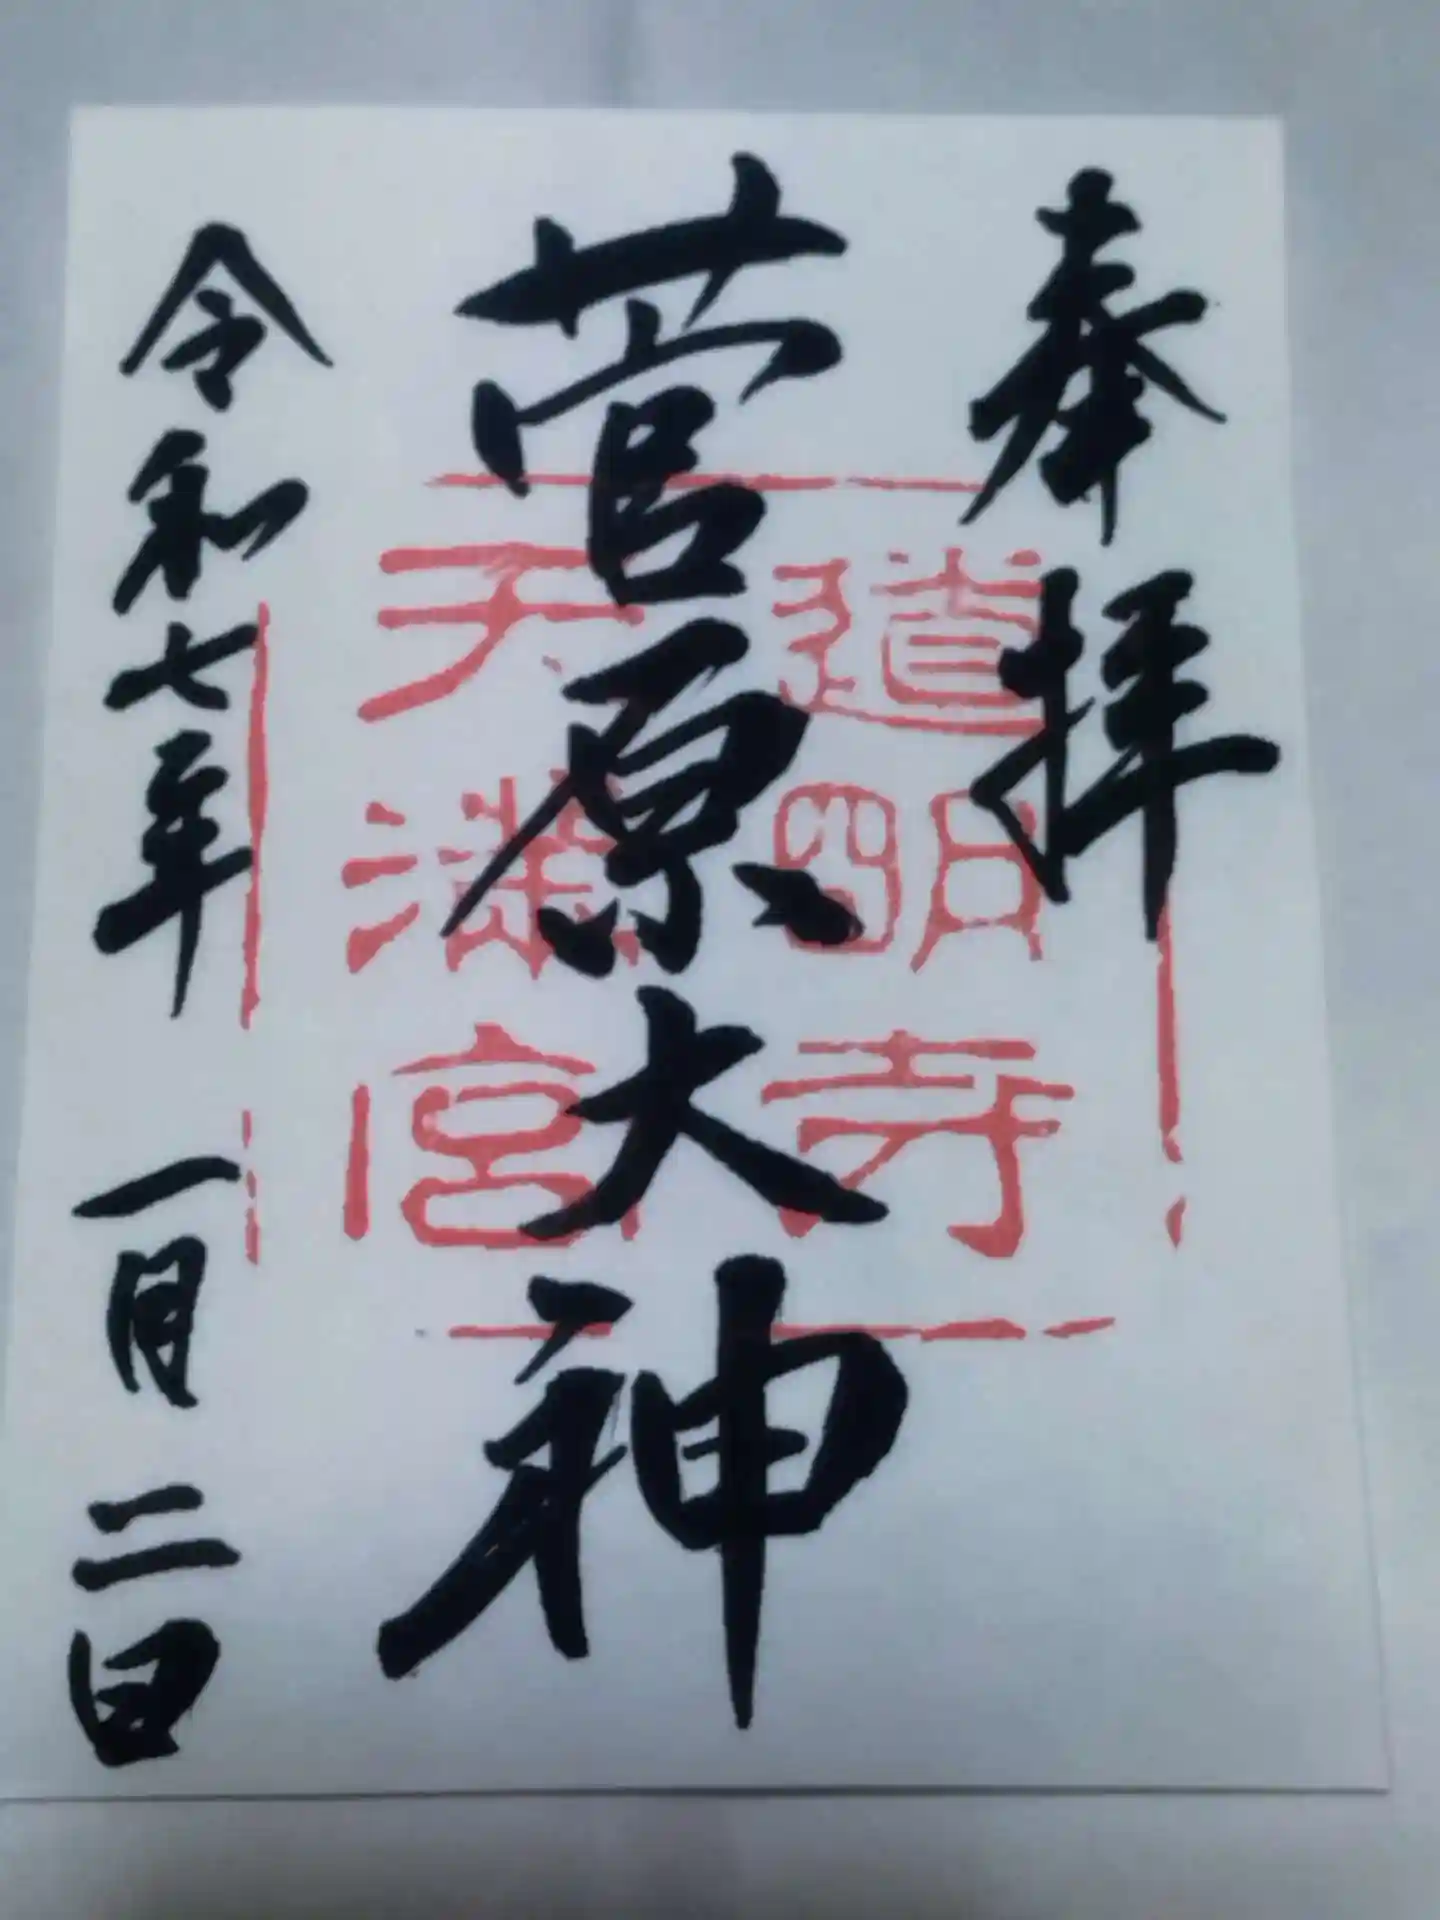 奉拝
菅原大神
道明寺
天満宮
令和七年一月二日